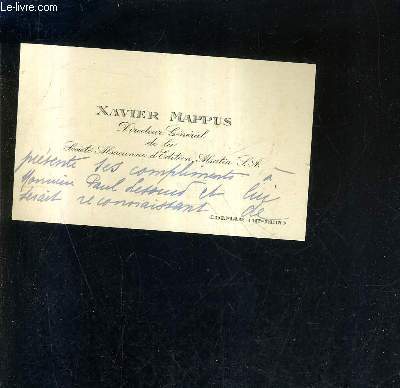 www.Le-Livre.com
XAVIER MAPPUS
Directeur Général
de la
Société Alsacienne d'Edition Alsatia S.A.
présente ses compliments à
Monsieur Paul et lui
serait reconnaissant de
COLMAR (HT-RHIN)